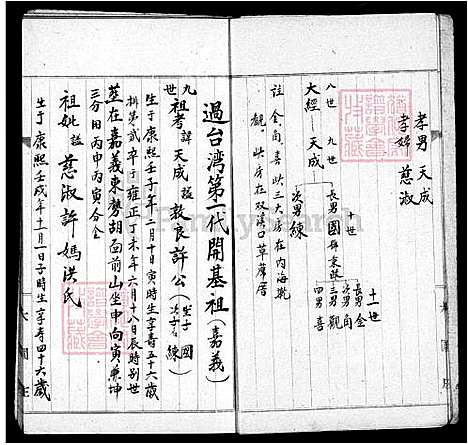 孝男 天成
孝婦 慈淑
八世 九世 十世 十一世
大經 天成
長男 國
次男 練
長男 金
次男 角
三男 觀
四男 喜
註 金角、喜 此三大房在內海墘
觀、此房在双溪口草厝
過台湾第一代開基祖(嘉義)
九世 祖考 諱 天成 諡 敦良許公(長子 國 次子 練)
生于康熙壬子年二月十日寅時生享壽五十六歲
排第貳 卒于雍正丁未年六月十八日辰時别世
塟在嘉義東勢胡面前山坐申向寅兼坤
三分用丙申丙寅分金
祖妣 諡 慈淑許媽洪氏
生于康熙壬戌年十一月一日子時生享壽四十六歲